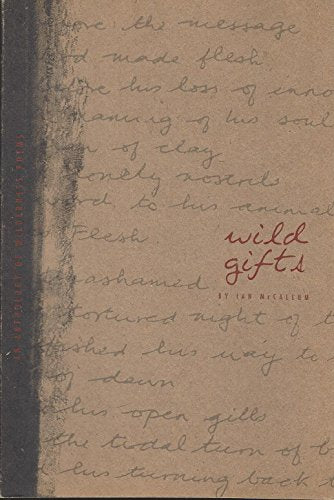 love: the message
made flesh
his loss of inno
naming of his soul
of clay
lonely nostrils
to his animal
Flesh
wild
gifts
BY IAN McCALLUM
AN ANTHOLOGY OF WILDERNESS POEMS
unashamed
tortured night of t
his way to
of dawn
his open gills
the tidal turn of b
his turning back